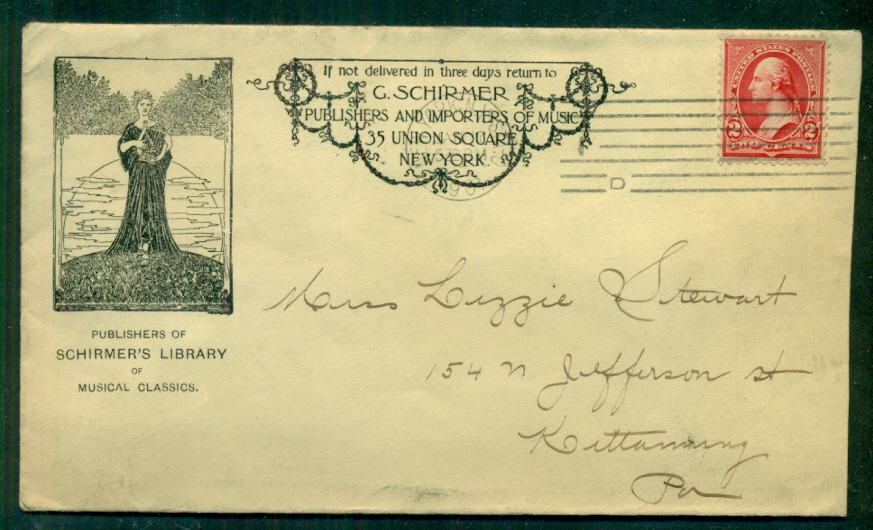 If not delivered in three days return to
G. SCHIRMER
PUBLISHERS AND IMPORTERS OF MUSIC
35 UNION SQUARE
NEW YORK.
UNITED STATES POSTAGE
2 2
TWO CENTS
D
Miss Lizzie Stewart
154 N Jefferson st
Kittanning
Pa
PUBLISHERS OF
SCHIRMER'S LIBRARY
OF
MUSICAL CLASSICS.